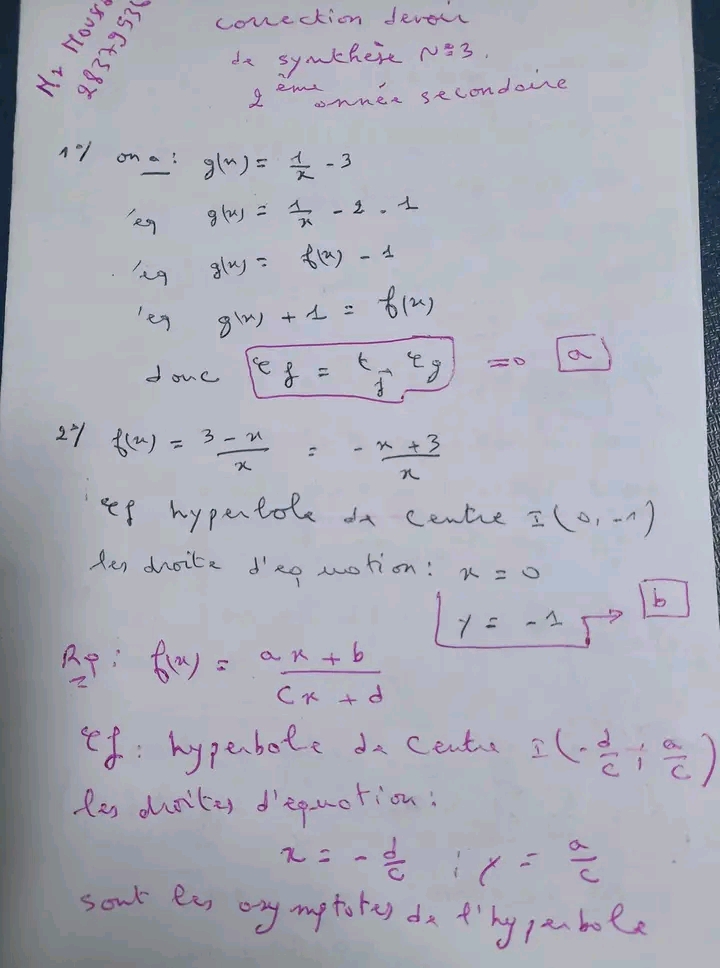 Mr Mouss
28379536
correction devoir
de synthèse N°3.
2ème année secondaire
1°/ on a : g(x) = 1/x - 3
éq g(x) = 1/x - 2 - 1
éq g(x) = f(x) - 1
éq g(x) + 1 = f(x)
donc ζf = t_j⃗ ζg => a
2°/ f(x) = (3 - x)/x = (-x + 3)/x
ζf hyperbole de centre I(0, -1)
les droite d'equation : x = 0
y = -1 → b
Rq : f(x) = (ax + b)/(cx + d)
ζf : hyperbole de centre I(-d/c ; a/c)
les droites d'equation :
x = -d/c ; y = a/c
sont les asymptotes de l'hyperbole